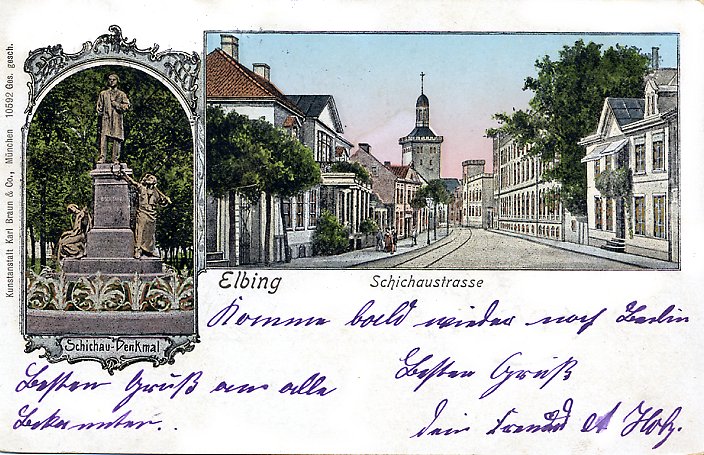 Kunstanstalt Karl Braun & Co., München 10592 Ges. gesch.
Elbing
Schichaustrasse
Schichau-Denkmal
Komme bald wieder nach Berlin
Besten Gruß an alle
Bekannten..
Besten Gruß
dein Freund A Holz.